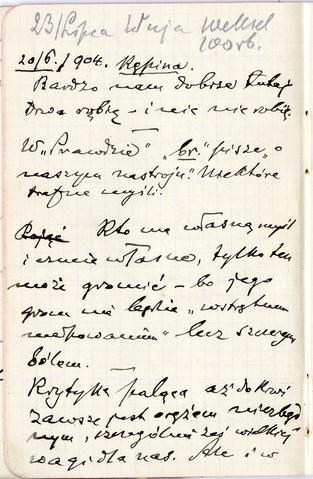 23/Lipca Wuja Weksel
100 rb.
20/6./904. Kępina.
Bardzo nam dobrze tutaj
Drwa rąbię – i nic nie robię.
W „Prawdzie” „br.” pisze „o
naszym nastroju”. Niektóre
trafne myśli.
Kto ma własną myśl
i własne, tylko ten
może gromić – bo jego
grom nie będzie „wstrętnem
” lecz szczerym
bólem.
Krytyka paląca aż do krwi
zawsze jest orężem niezbęd
nym, szczególnie zaś wielkiej
wagi dla nas. Ale i w